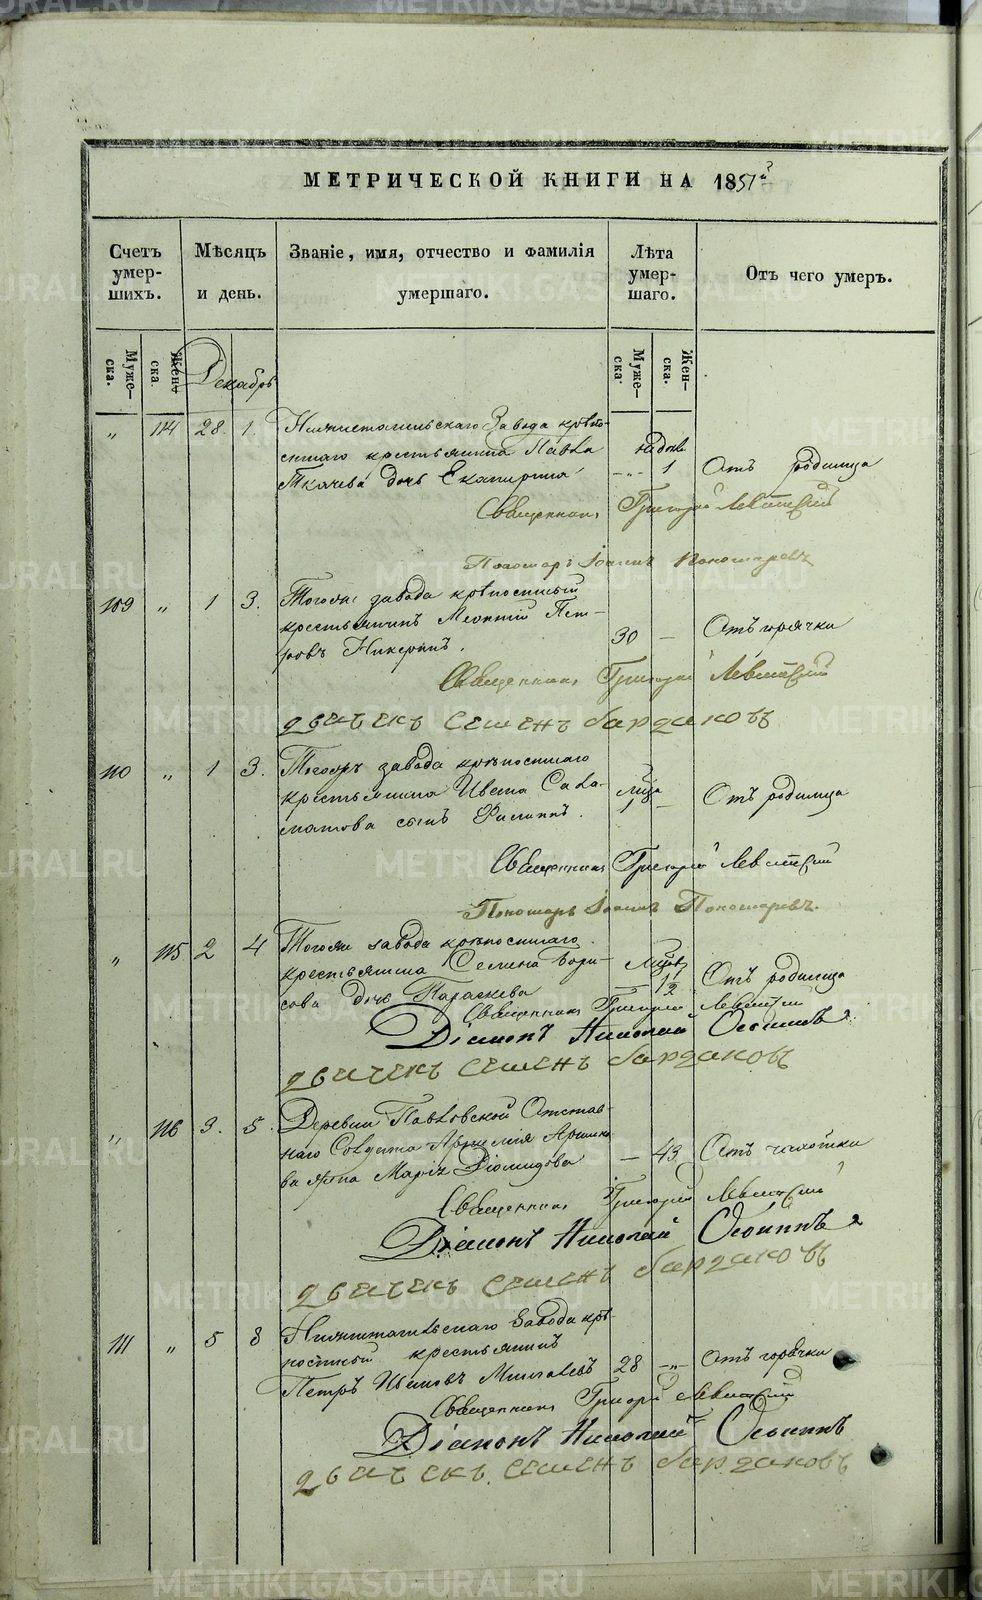 МЕТРИЧЕСКОЙ КНИГИ НА 1851й
Счетъ умер-шихъ.
Мѣсяцъ и день.
Званіе, имя, отчество и фамилія умершаго.
Лѣта умер-шаго.
Отъ чего умеръ.
Муже-ска.
Жен-ска.
Декабрь
Муже-ска.
Жен-ска.
" 114 28. 1. Нижнетагильскаго Завода крѣпо-
стнаго крестьянина Павла
Ткачева дочь Екатерина 1 Отъ родимца
Священникъ Григорій Левитскій
Пономарь Іоаннъ Пономаревъ
109 " 1 3. Тогоже завода крѣпостный
крестьянинъ Леонтій Пет-
ровъ 30 — Отъ горячки
Священникъ Григорій Левитскій
дьячекъ Семенъ бардаковъ
110 " 1 3. Тогожъ завода крѣпостнаго
крестьянина Ивана Сала-
матова сынъ Филиппъ. 1 — Отъ родимца
Священникъ Григорій Левитскій
Пономарь Іоаннъ Пономаревъ.
" 115 2 4 Тогоже завода крѣпостнаго
крестьянина Семена Бори-
сова дочь Параскева Отъ родимца
Священникъ Григорій Левитскій
Діаконъ Николай Осиповъ
дьячекъ Семенъ бардаковъ
" 116 3. 5. Деревни Павловской Отстав-
наго Солдата
жена Марія Діомидова — 43 Отъ чахотки
Священникъ Григорій Левитскій
Діаконъ Николай Осиповъ
дьячекъ Семенъ бардаковъ
111 " 5 8 Нижнетагильскаго Завода крѣ-
постный крестьянинъ
Петръ Ивановъ 28 —"— Отъ горячки
Священникъ Григорій Левитскій
Діаконъ Николай Осиповъ
дьячекъ Семенъ бардаковъ
METRIKI.GASO-URAL.RU